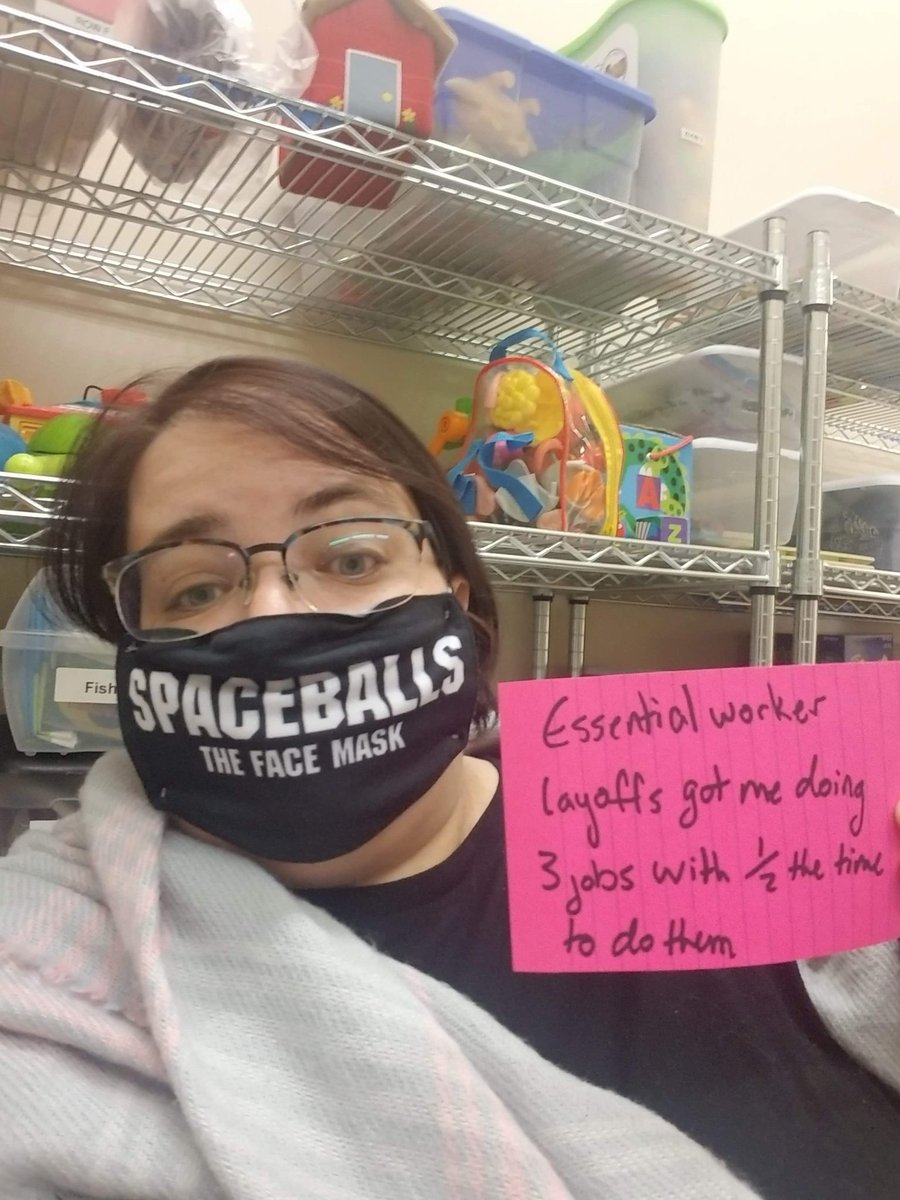 SPACEBALLS
THE FACE MASK
Fish
Essential worker
layoffs got me doing
3 jobs with 1/2 the time
to do them
A
Z